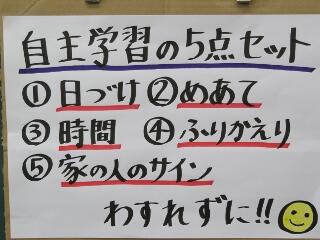 自主学習の5点セット
①日づけ ②めあて
③時間 ④ふりかえり
⑤家の人のサイン
わすれずに!!